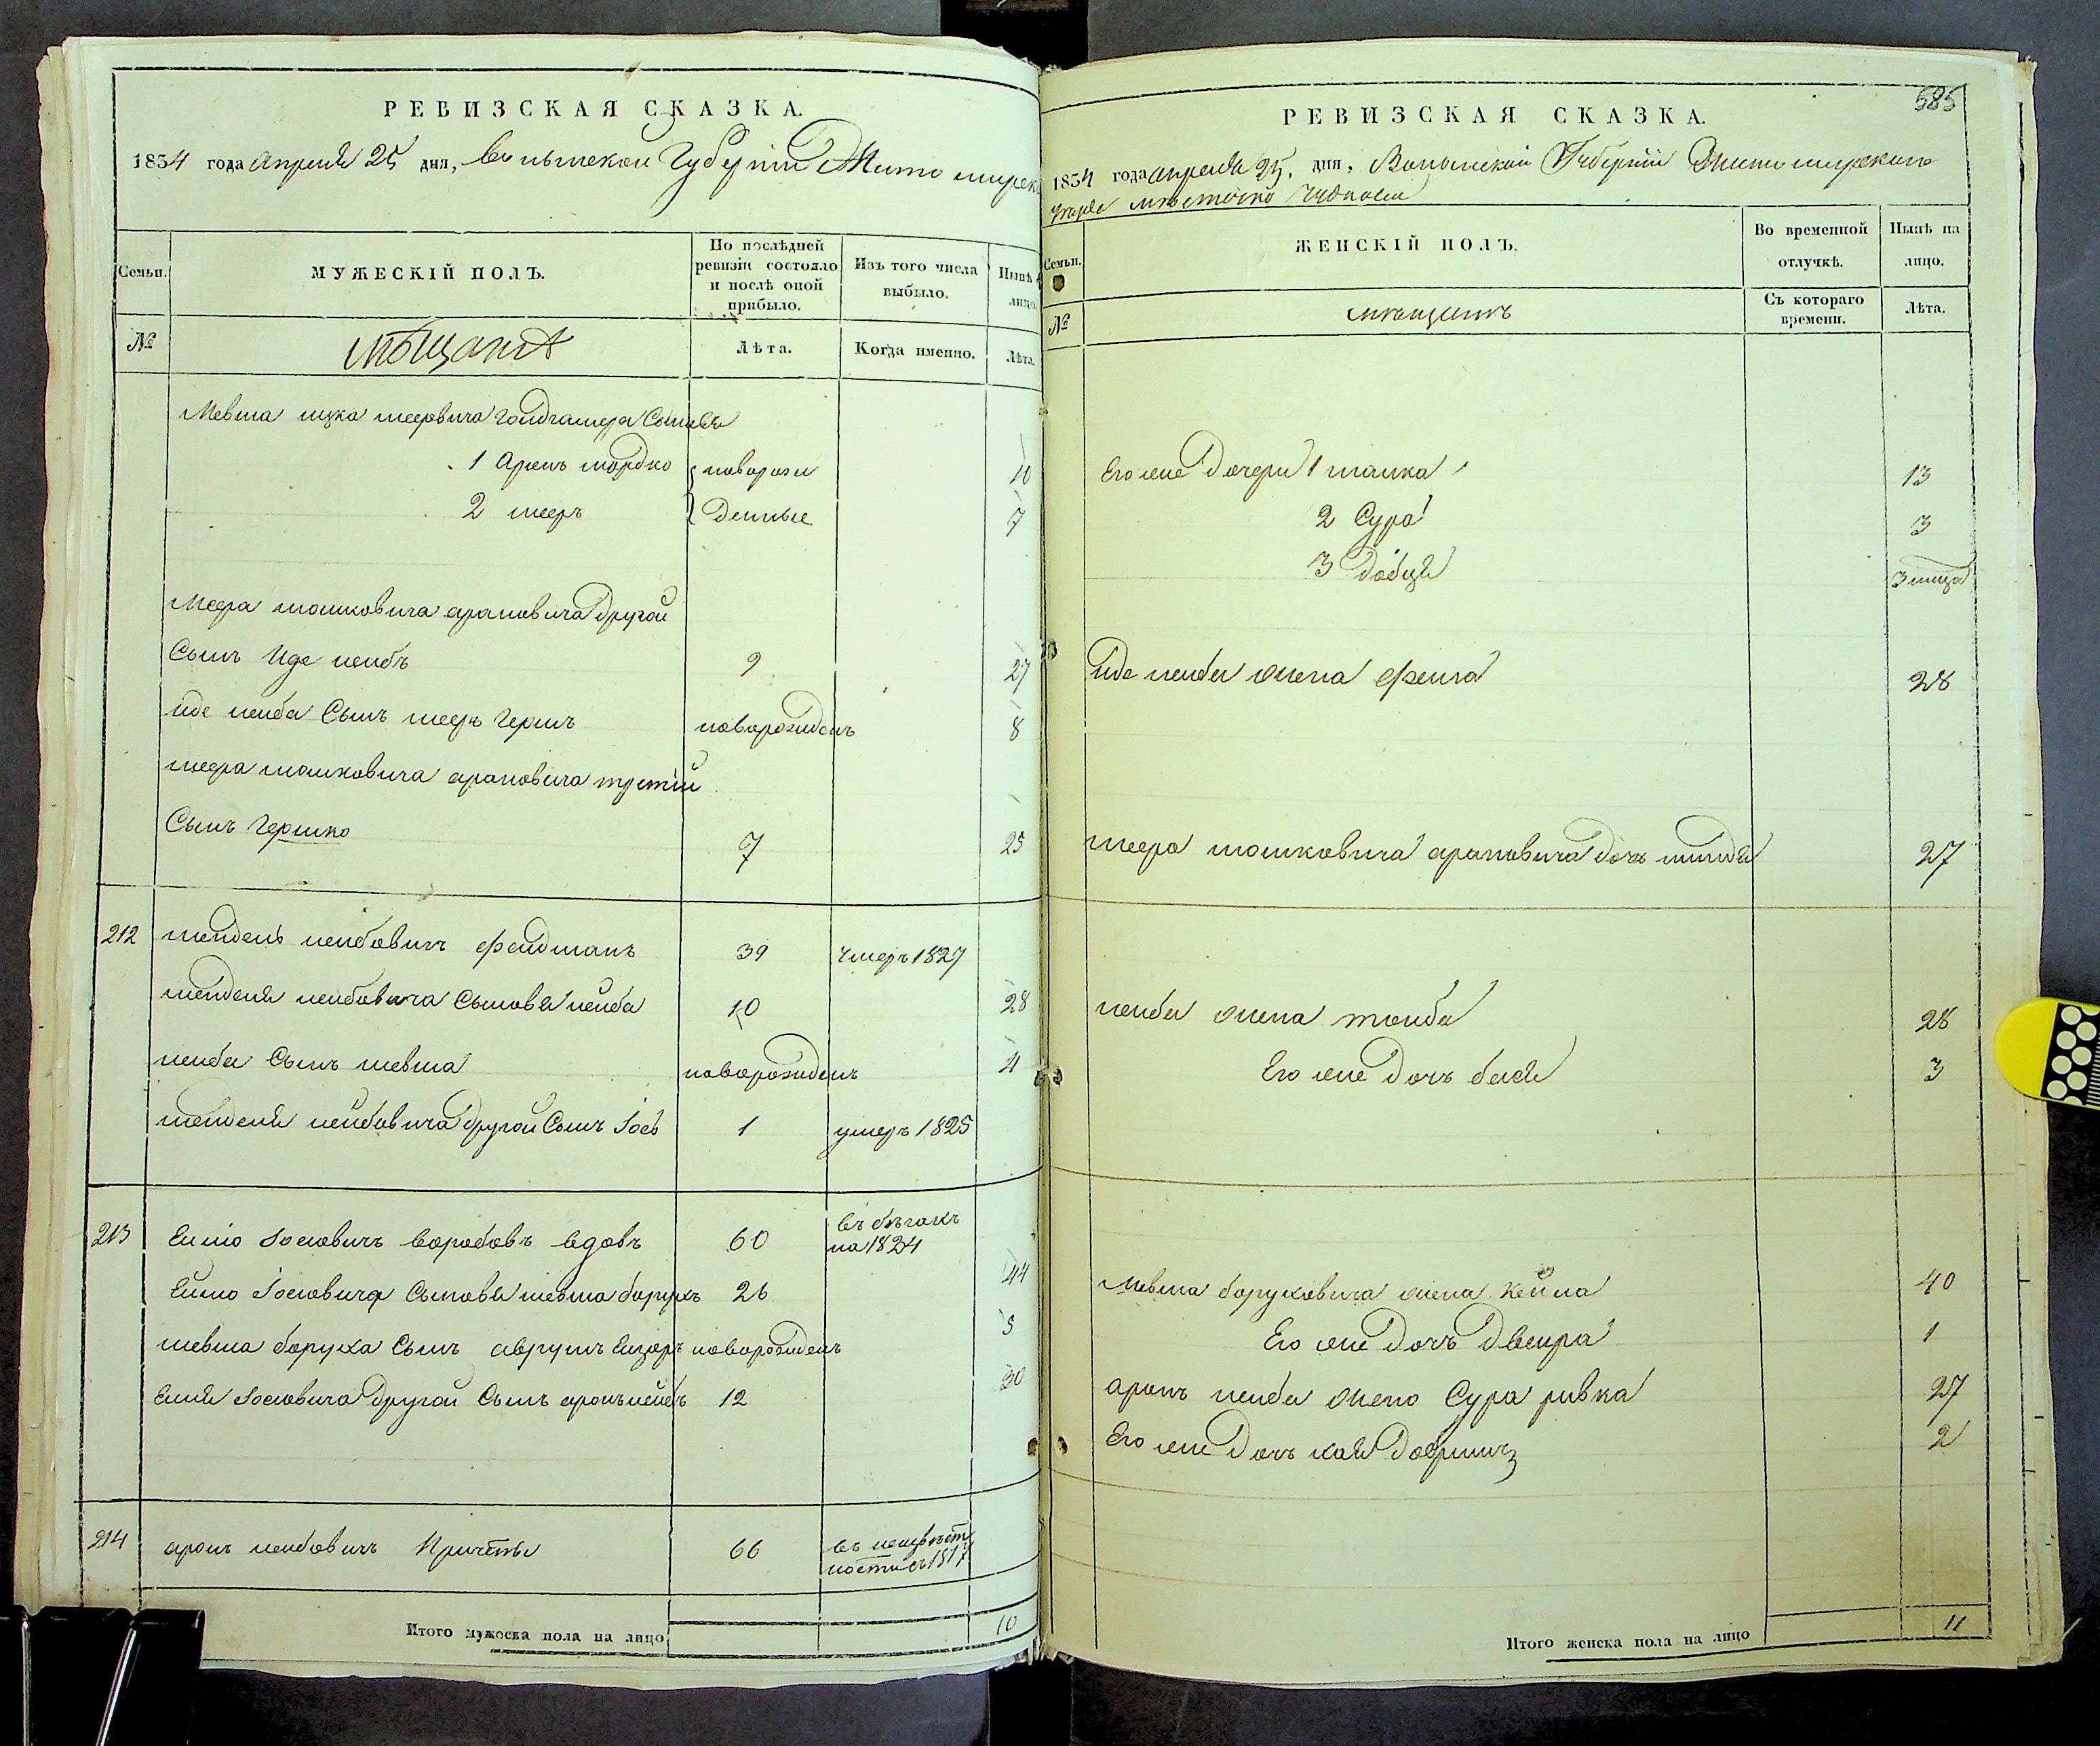 РЕВИЗСКАЯ СКАЗКА.
1834 года Апреля 25 дня, Волынской Губернiи Житомирск
Семьи.
МУЖЕСКIЙ ПОЛЪ.
По послѣдней ревизiи состояло и послѣ оной прибыло.
Изъ того числа выбыло.
Нынѣ на лицо.
№
Мѣщанъ
Лѣта.
Когда именно.
Лѣта.
Мевша ицка мееровича Сыновья
1 Аронъ мордко новорож 10
2 мееръ денные 7
Меера мошковича ароновича другой
Сынъ Иде лейбъ 9 27
иде лейбы Сынъ меер Герш новорожденъ 8
меера мошковича ароновича третiй
Сынъ Гершко 7 25
212 мендель лейбовичъ фельдманъ 39 умеръ 1827
менделя лейбовича Сыновья лейба 10 28
лейбы Сынъ мевша новорожденъ 4
менделя лейбовича другой Сынъ Iось 1 умеръ 1825
213 Еино Iосiовичъ воробовъ вдовъ 60 въ бѣгахъ на 1824
Iосiовича Сыновья мевша борухъ 26 44
мевша боруха Сынъ аврумъ новорожденъ 5
Iосiовича другой Сынъ аронъ лейбъ 12 30
214 аронъ лейбовичъ 66 въ неизвѣст
ности 1817
Итого мужеска пола на лицо 10
585
РЕВИЗСКАЯ СКАЗКА.
1834 года апреля 25 дня, Волынской Губернiи Житомирскаго
уезда мѣстечка Чуднова
Семьи.
ЖЕНСКIЙ ПОЛЪ.
Во временной отлучкѣ.
Нынѣ на лицо.
№
мѣщанъ
Съ котораго времени.
Лѣта.
Его же дочери 1 малка 13
2 Сура 3
3 Добця 3 мица
иде лейбы жена фейга 28
меера мошковича ароновича дочь миндя 27
лейбы жена тойба 28
Его же дочь бася 3
Мевша боруховича жена Хейна 40
Его же дочь двейра 1
аронъ лейбы жена Сура ривка 27
Его же дочь хая 2
Итого женска пола на лицо 11